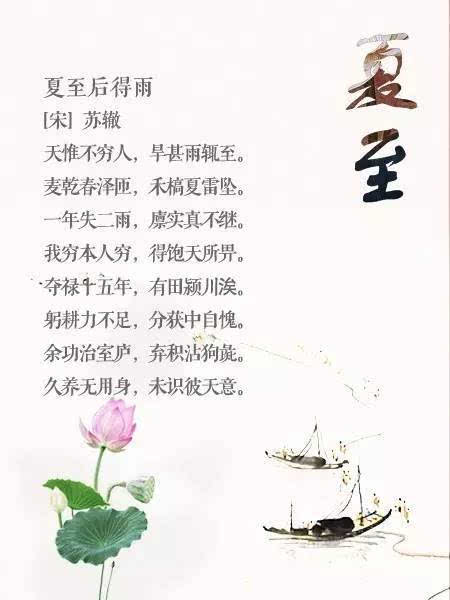 夏至
夏至后得雨
[宋] 苏辙
天惟不穷人，旱甚雨辄至。
麦乾春泽匝，禾槁夏雷坠。
一年失二雨，廪实真不继。
我穷本人穷，得饱天所畀。
夺禄十五年，有田颍川涘。
躬耕力不足，分获中自愧。
余功治室庐，弃积沾狗彘。
久养无用身，未识彼天意。